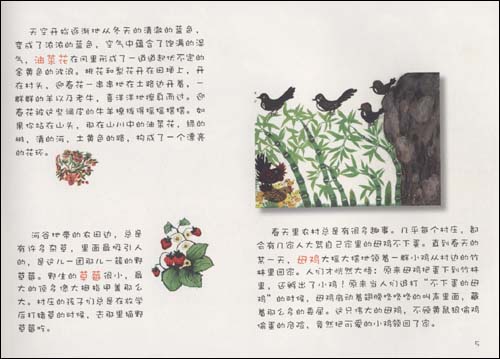 天空开始逐渐地从冬天的清澈的蓝色，
变成了浓浓的蓝色，空气中蕴含了饱满的湿
气，油菜花在风里形成了一道道起伏不定的
金黄色的波浪。桃花和梨花开在田埂上，开
在村头，迎春花一串串地在土路边开着，一
群群的羊以及老牛，喜洋洋地擦肩而过。迎
春花被这些调皮的牛羊撩拨得摇摇摆摆。如
果你站在山头，那在山川中的油菜花，绿的
树，清的河，土黄色的路，构成了一个漂亮
的花环。
河谷地带的农田边，总是
有许多杂草，里面最吸引人
的，是这儿一团那儿一簇的野
草莓。野生的草莓很小，最
大的顶多像大拇指甲盖那么
大。村庄的孩子们总是在放学
后打猪草的时候，去那里偷野
草莓吃。
春天里农村总是有很多趣事。几乎每个村庄，都
会有几家人大骂自己家里的母鸡不下蛋。直到春天的
某一天，母鸡大摇大摆地领着一群小鸡从村边的竹
林里回家。人们才恍然大悟：原来母鸡把蛋下到竹林
里，还孵出了小鸡！原来当人们追打“不下蛋的母
鸡”的时候，母鸡扇动着翅膀咚咚咚的叫声里面，藏
着那么多的委屈。这只伟大的母鸡，不顾黄鼠狼偷鸡
偷蛋的危险，竟然把可爱的小鸡领回了家。
5